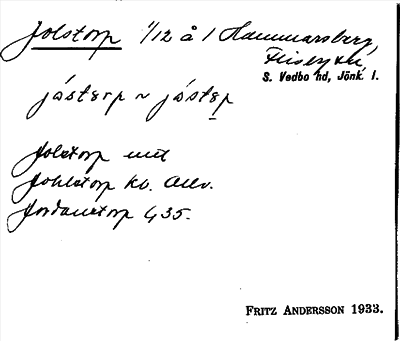 Jolstorp 1/12 å 1 Hammarsberg,
Flisby sn,
S. Vedbo hd, Jönk. l.
jástorp ~ jóstep
Jolstorp uut
Johlstorp Kb. Allv.
Jordanstorp G35.
FRITZ ANDERSSON 1933.